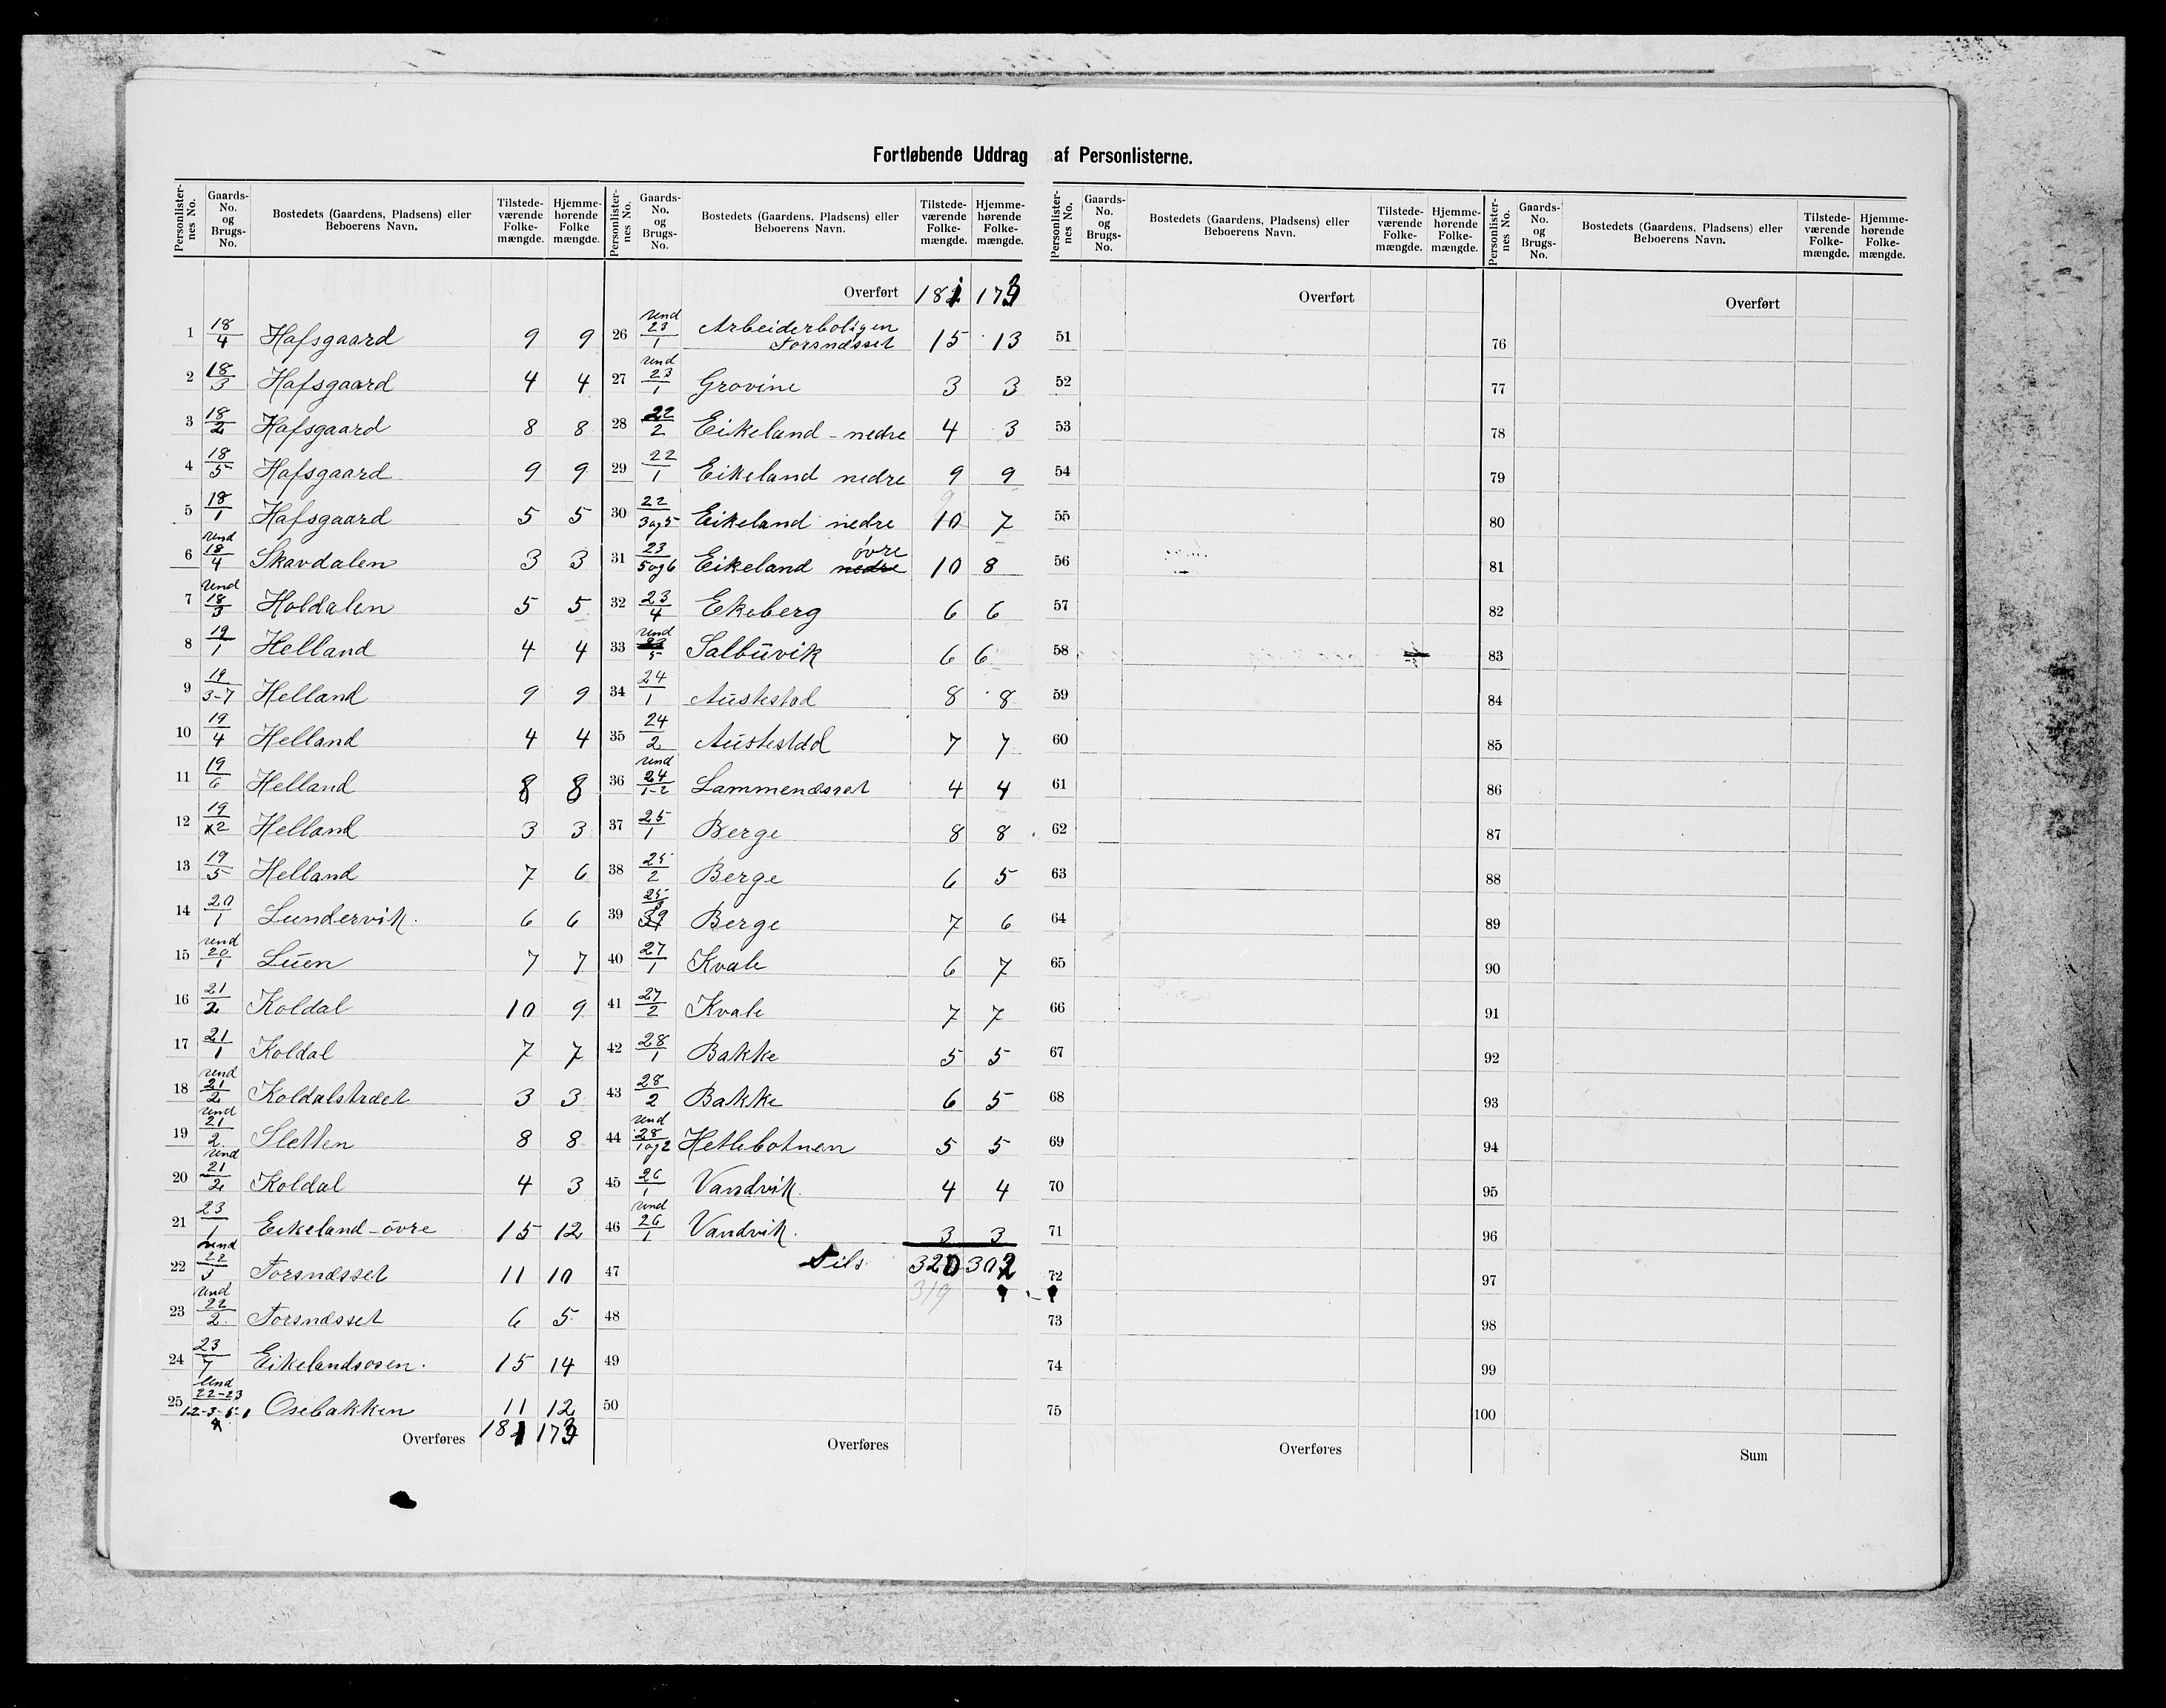 Fortløbende Uddrag af Personlisterne.
Personlisternes No. | Gaards-No. og Brugs-No. | Bostedets (Gaardens, Pladsens) eller Beboerens Navn. | Tilstedeværende Folkemængde. | Hjemmehørende Folkemængde.
1 18/4 Hafsgaard 9 9
2 18/3 Hafsgaard 4 4
3 18/2 Hafsgaard 8 8
4 18/5 Hafsgaard 9 9
5 18/1 Hafsgaard 5 5
6 und 18/4 Skavdalen 3 3
7 und 18/3 Holdalen 5 5
8 19/1 Helland 4 4
9 19/3-7 Helland 9 9
10 19/4 Helland 4 4
11 19/6 Helland 8 8
12 19/2 Helland 3 3
13 19/5 Helland 7 6
14 20/1 Lundervik. 6 6
15 und 20/1 Luen 7 7
16 21/2 Koldal 10 9
17 21/1 Koldal 7 7
18 und 21/2 Koldalstræet 3 3
19 und 21/2. Sletten 8 8
20 und 21/2 Koldal 4 3
21 23/1 Eikeland-övre 15 12
22 und 22/3 Forsnæsset 11 10
23 und 22/2. Forsnæsset 6 5
24 23/7 Eikelandsosen. 15 14
25 Und 22-23 Osebakken 11 12
Overføres 181 173
Personlisternes No. | Gaards-No. og Brugs-No. | Bostedets (Gaardens, Pladsens) eller Beboerens Navn. | Tilstedeværende Folkemængde. | Hjemmehørende Folkemængde.
Overført 181 173
26 und 23/1 Arbeiderboligen Forsnæsset 15 13
27 und 23/1 Grovine 3 3
28 22/2 Eikeland-nedre 4 3
29 22/1 Eikeland nedre 9 9
30 22/3og5 Eikeland nedre 10 7
31 23/5og6 Eikeland nedre övre 10 8
32 23/4 Ekeberg 6 6
33 und 23/5 Salbuvik 6 6
34 24/1 Austestad 8 8
35 24/2 Austestad 7 7
36 und 24/1-2 Lammenæsset 4 4
37 25/1 Berge 8 8
38 25/2 Berge 6 5
39 25/3 Berge 7 6
40 27/1 Kvale 6 7
41 27/2 Kvale 7 7
42 28/1 Bakke 5 5
43 28/2 Bakke 6 5
44 und 28/1og2 Hetlebotnen 5 5
45 26/1 Vandvik. 4 4
46 und 26/1 Vandvik. 3 3
47 Tils. 320 302
319
48
49
50
Overføres
Personlisternes No. | Gaards-No. og Brugs-No. | Bostedets (Gaardens, Pladsens) eller Beboerens Navn. | Tilstedeværende Folkemængde. | Hjemmehørende Folkemængde.
Overført
51
52
53
54
55
56
57
58
59
60
61
62
63
64
65
66
67
68
69
70
71
72
73
74
75
Overføres
Personlisternes No. | Gaards-No. og Brugs-No. | Bostedets (Gaardens, Pladsens) eller Beboerens Navn. | Tilstedeværende Folkemængde. | Hjemmehørende Folkemængde.
Overført
76
77
78
79
80
81
82
83
84
85
86
87
88
89
90
91
92
93
94
95
96
97
98
99
100
Sum